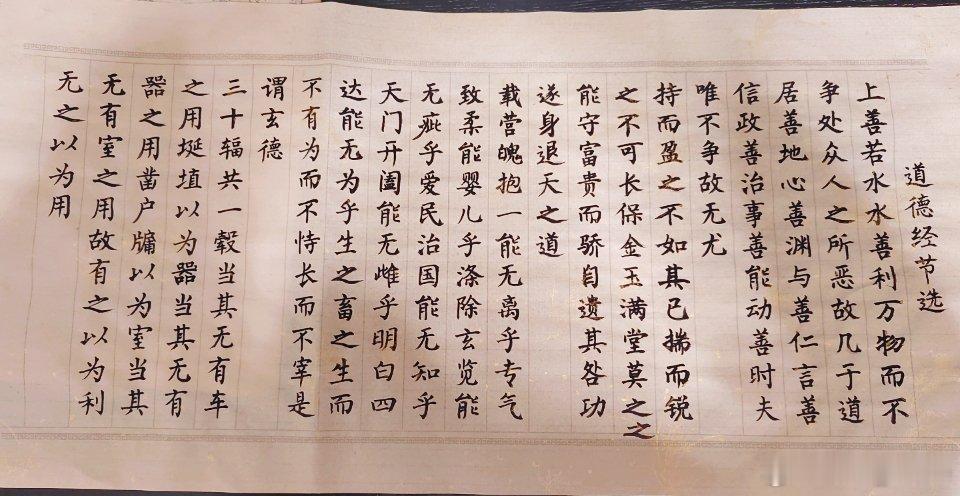 道德经节选
上善若水水善利万物而不
争处众人之所恶故几于道
居善地心善渊与善仁言善
信政善治事善能动善时夫
唯不争故无尤
持而盈之不如其已揣而锐
之不可长保金玉满堂莫之之
能守富贵而骄自遗其咎功
遂身退天之道
载营魄抱一能无离乎专气
致柔能婴儿乎涤除玄览能
无疵乎爱民治国能无知乎
天门开阖能无雌乎明白四
达能无为乎生之畜之生而
不有为而不恃长而不宰是
谓玄德
三十辐共一毂当其无有车
之用埏埴以为器当其无有
器之用凿户牖以为室当其
无有室之用故有之以为利
无之以为用